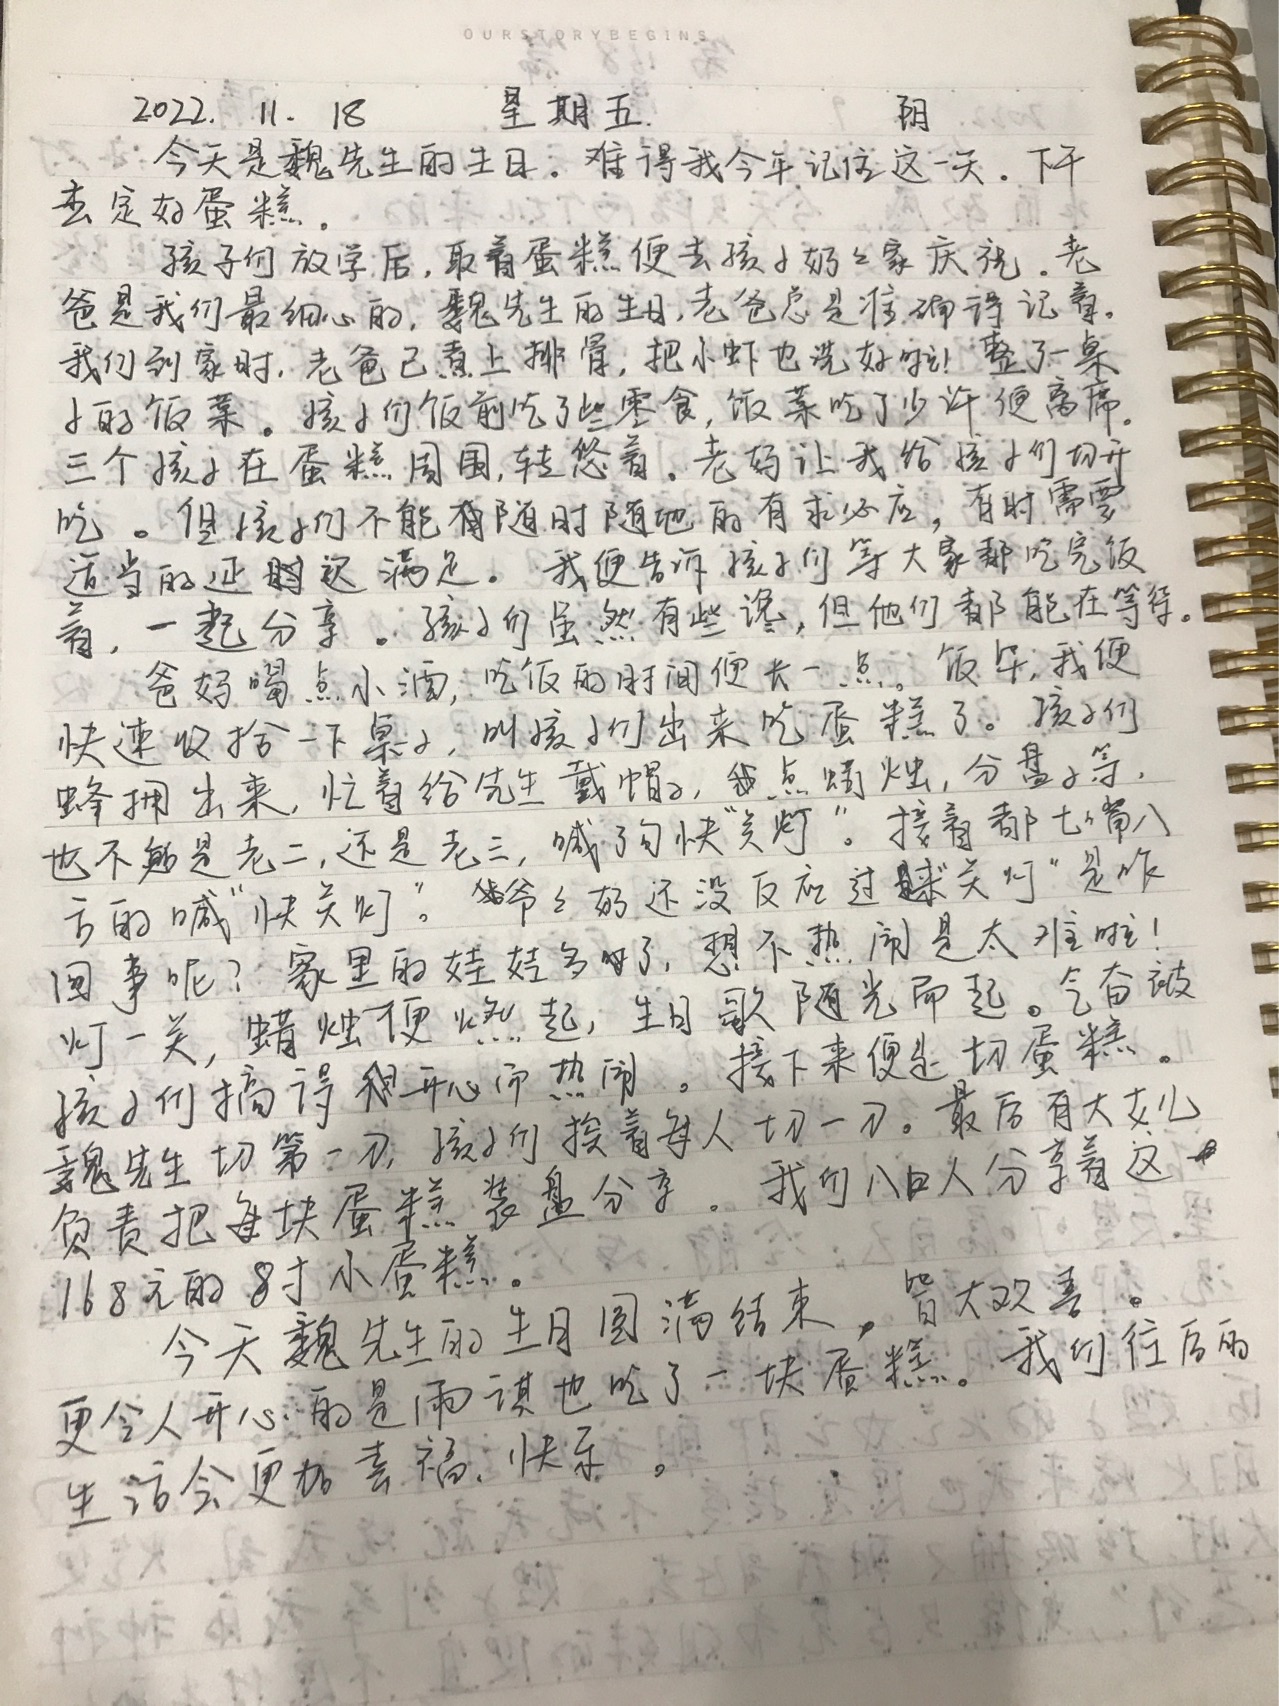 OURSTORYBEGINS
2022. 11. 18 星期五. 阴
今天是魏先生的生日。难得我今年记住这一天。下午
去定好蛋糕。
孩子们放学后,取着蛋糕便去孩子奶々家庆祝。老
爸是我们最细心的,魏先生的生日,老爸总是准确得记着。
我们到家时,老爸已煮上排骨,把小虾也洗好啦!整了一桌
子的饭菜。孩子们饭前吃了些零食,饭菜吃了少许便离席。
三个孩子在蛋糕周围,转悠着。老妈让我给孩子们切开
吃。但孩子们不能随时随地的有求必应,有时需要
适当的延时满足。我便告诉孩子们等大家都吃完饭
着,一起分享。孩子们虽然有些馋,但他们都能在等待。
爸妈喝点小酒,吃饭的时间便长一点。饭毕,我便
快速收拾一下桌子,叫孩子们出来吃蛋糕了。孩子们
蜂拥出来,忙着给先生戴帽子,点蜡烛,分盘子等,
也不知是老二,还是老三,喊了句快“关灯”。接着都七嘴八
舌的喊“快关灯”。爷々奶还没反应过来“关灯”是咋
回事呢?家里的娃娃多了,想不热闹是太难啦!
灯一关,蜡烛便燃起,生日歌随光而起。气奋被
孩子们搞得很开心而热闹。接下来便是切蛋糕。
魏先生切第一刀,孩子们挨着每人切一刀。最后有大女儿
负责把每块蛋糕装盘分享。我们八口人分享着这
168元的8寸小蛋糕。
今天魏先生的生日圆满结束,皆大欢喜。
更令人开心的是雨谋也吃了一块蛋糕。我们往后的
生活会更加幸福、快乐。